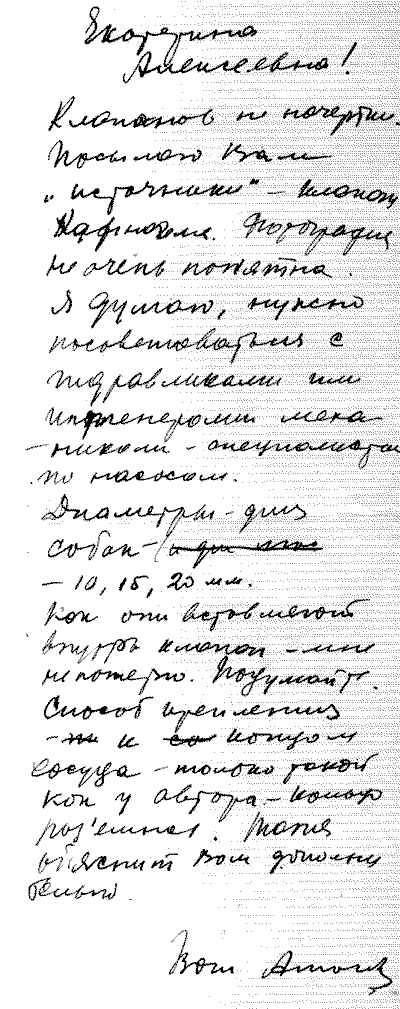 Екатерина
Алексеевна!
Клапанов не начертил.
Посылаю Вам
"источники" – клапан
Хафнагеля. Фотография
не очень понятна.
Я думаю, нужно
посоветоваться с
гидравликами или
инженерами меха
–никами – специалистами
по насосам.
Диаметры – для
собак –
– 10, 15, 20 мм.
Как они вставляют
внутрь клапан – мне
непонятно. Подумайте.
Способ крепления
– к концам
сосуда – только такой
как у автора – кольцо
раз'емное. Толя
об'яснит Вам дополни
тельно.
Ваш Амосов